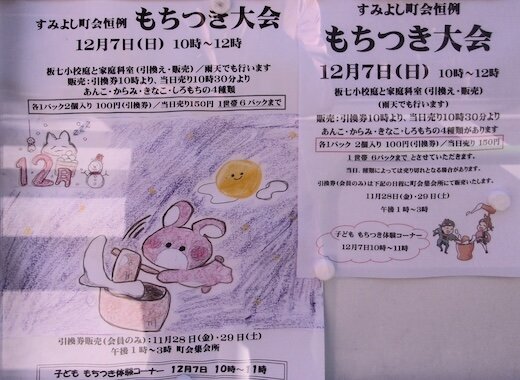 すみよし町会恒例
もちつき大会
12月7日(日) 10時～12時
板七小校庭と家庭科室(引換え・販売)/雨天でも行います
販売:引換券10時より、当日売り10時30分より
あんこ・からみ・きなこ・しろもちの4種類
各1パック2個入り 100円(引換券)/当日売り150円 1世帯 6パックまで
12月
引換券販売(会員のみ):11月28日(金)・29日(土)
午後1～3時 町会集会所
子ども もちつき体験コーナー 12月7日 10時～11時
すみよし町会恒例
もちつき大会
12月7日(日) 10時～12時
板七小校庭と家庭科室(引換え・販売)
(雨天でも行います)
販売:引換券10時より、当日売り10時30分より
あんこ・からみ・きなこ・しろもちの4種類があります
各1パック 2個入り 100円(引換券)/当日売り 150円
1世帯 6パックまで とさせていただきます。
当日、種類によっては売り切れとなる場合があります。
引換券(会員のみ)は下記の日程に町会集会所にて販売いたします。
11月28日(金)・29(土)
午後1～3時
子ども もちつき体験コーナー
12月7日10時～11時